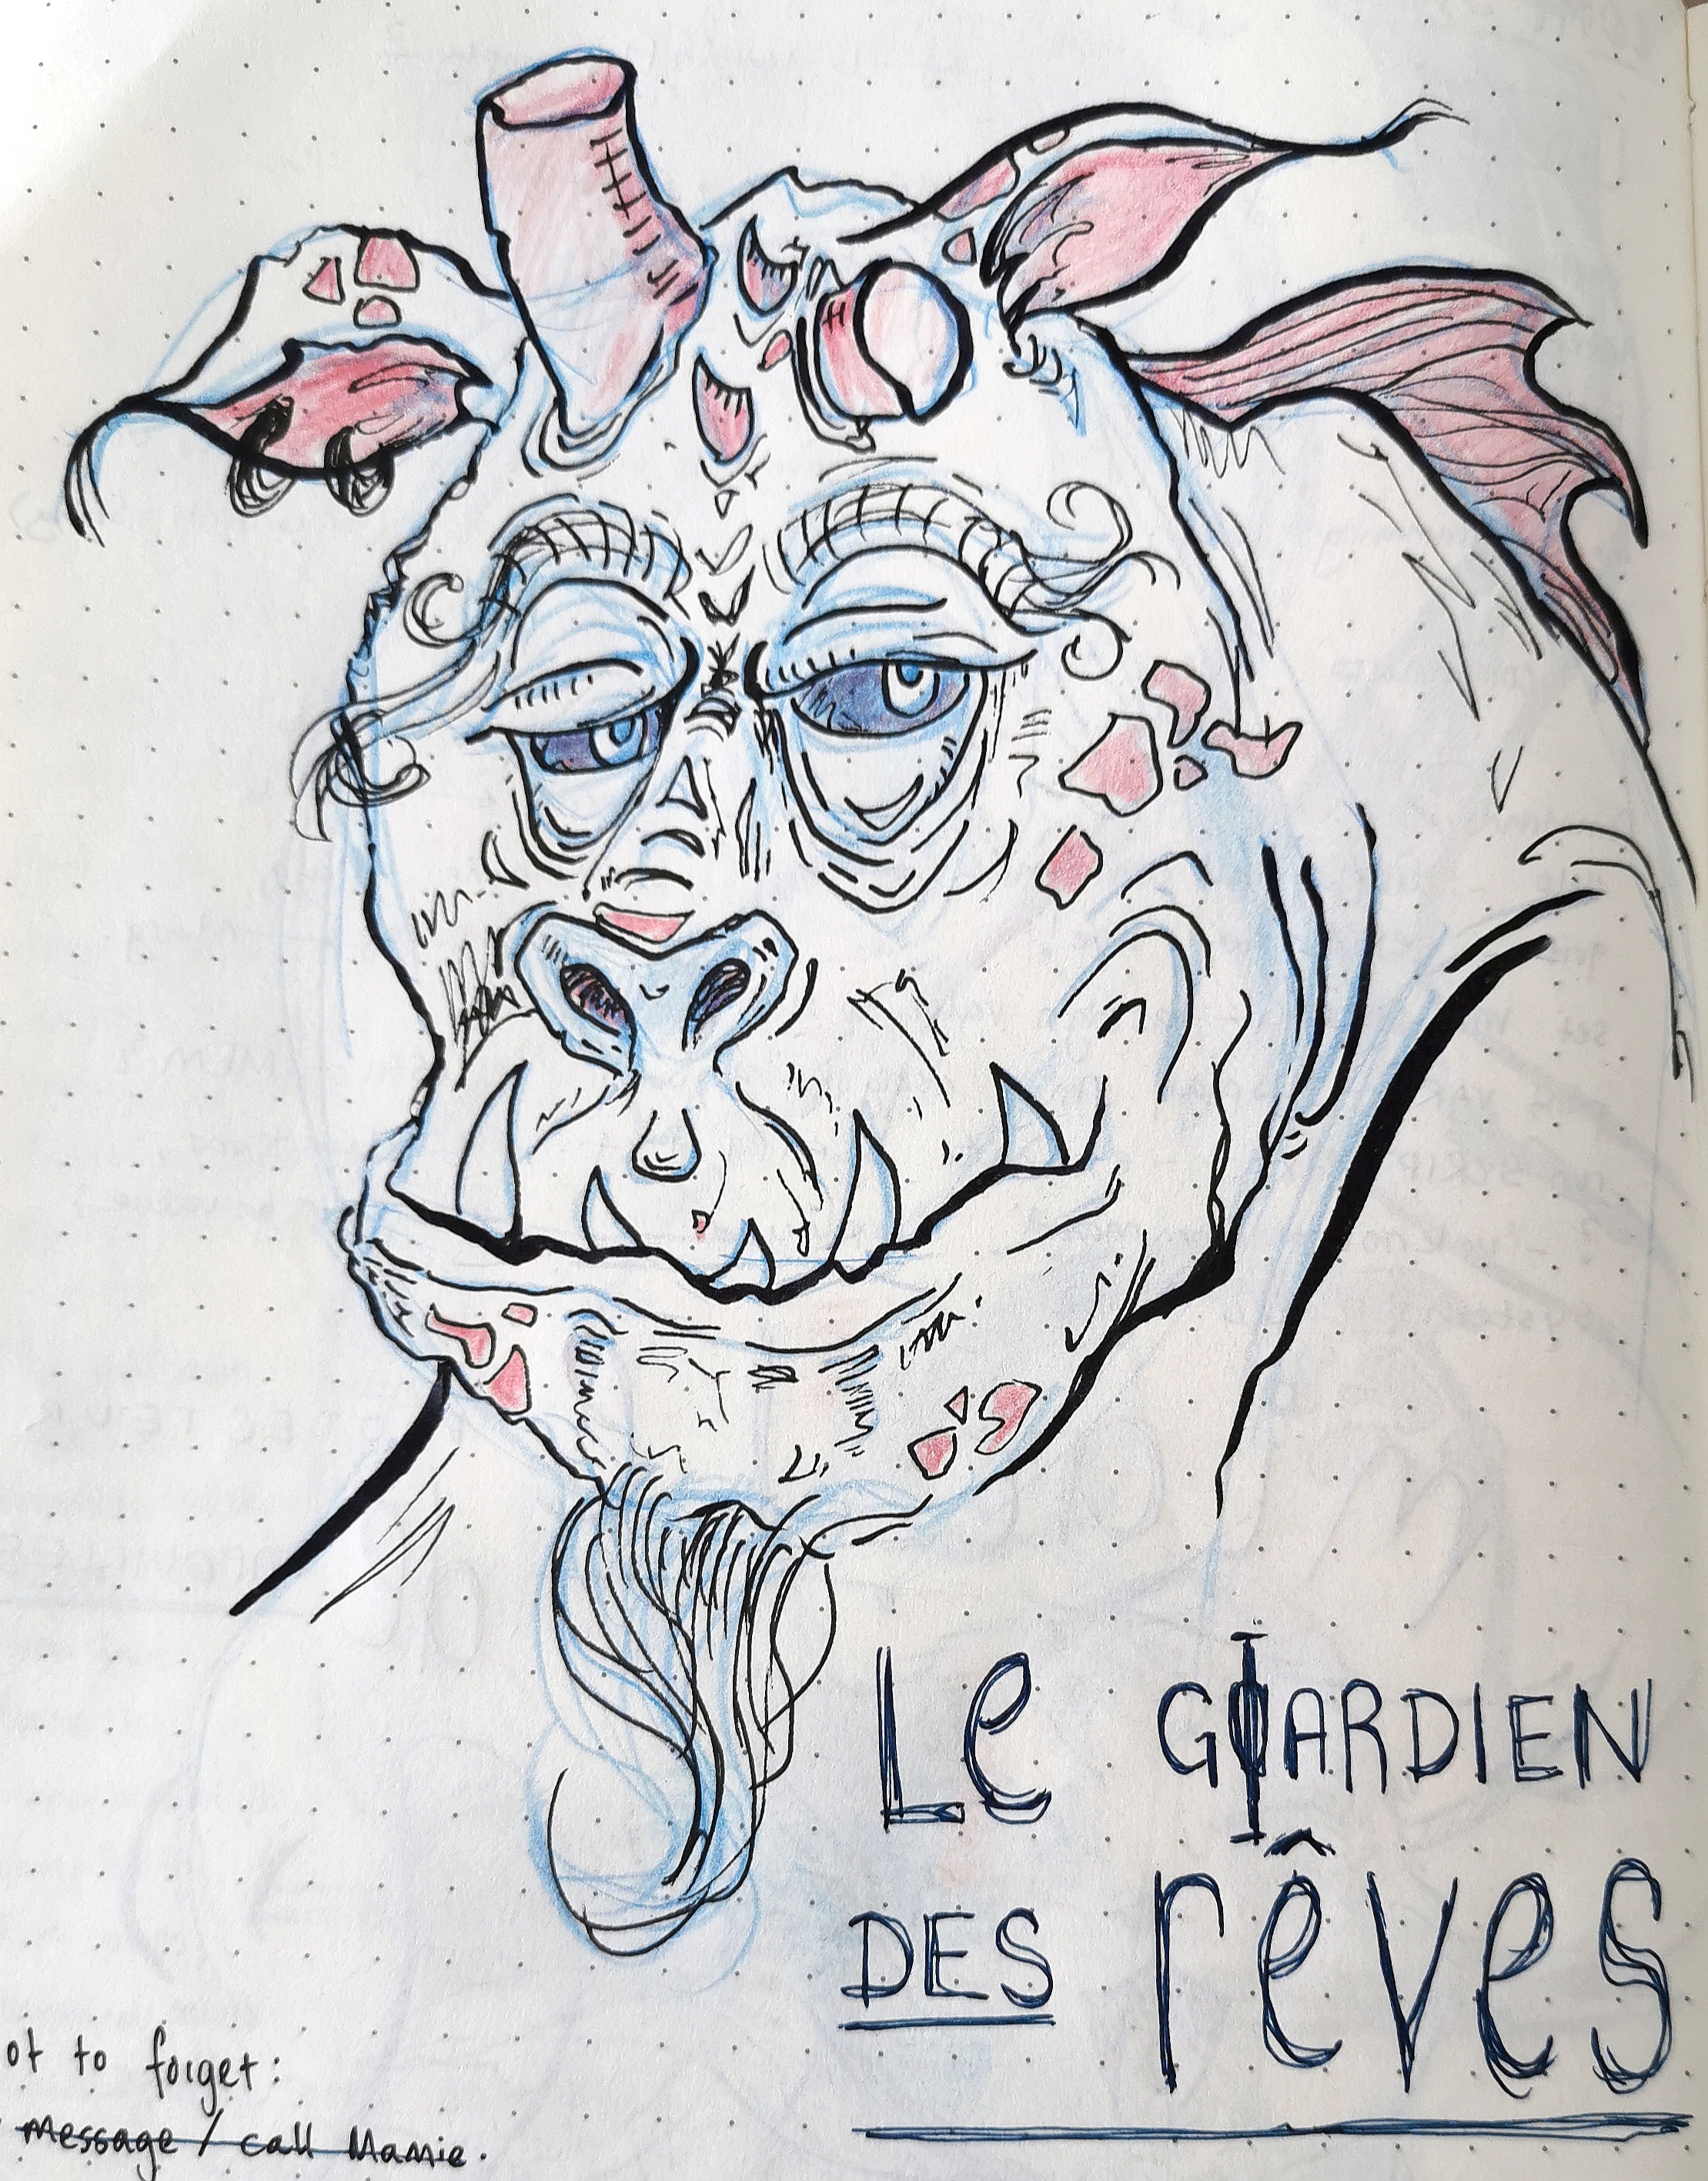 Le GARDIEN
DES rêves
ot to forget:
message / call Mamie.